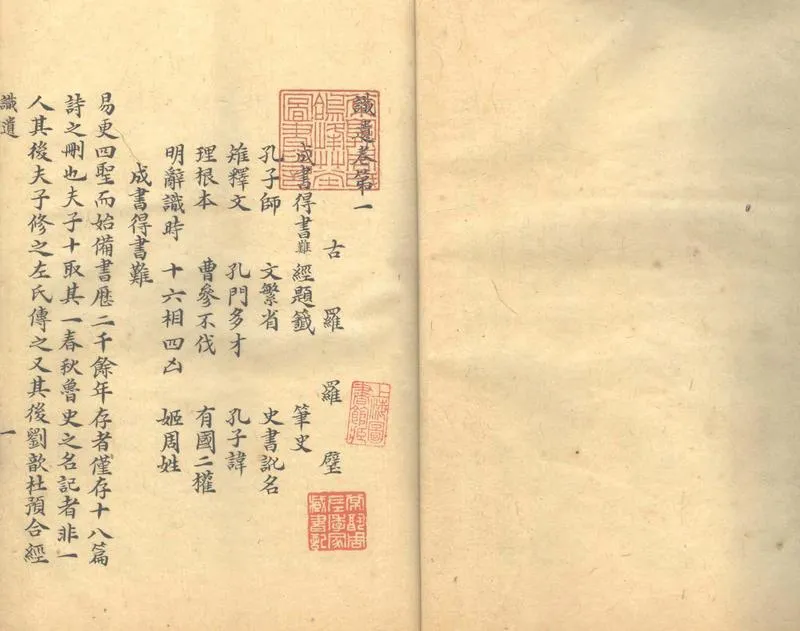 識遺卷第一
古羅 羅璧
成書得書難 經題籤 筆史
孔子師 文繁省 史書訛名
雉釋文 孔門多才 孔子諱
理根本 曹參不伐 有國二權
明辭識時 十六相四凶 姬周姓
成書得書難
易更四聖而始備書歷二千餘年存者僅存十八篇
詩之刪也夫子十取其一春秋魯史之名記者非一
人其後夫子修之左氏傳之又其後劉歆杜預合經
識遺 一
上海圖書館藏